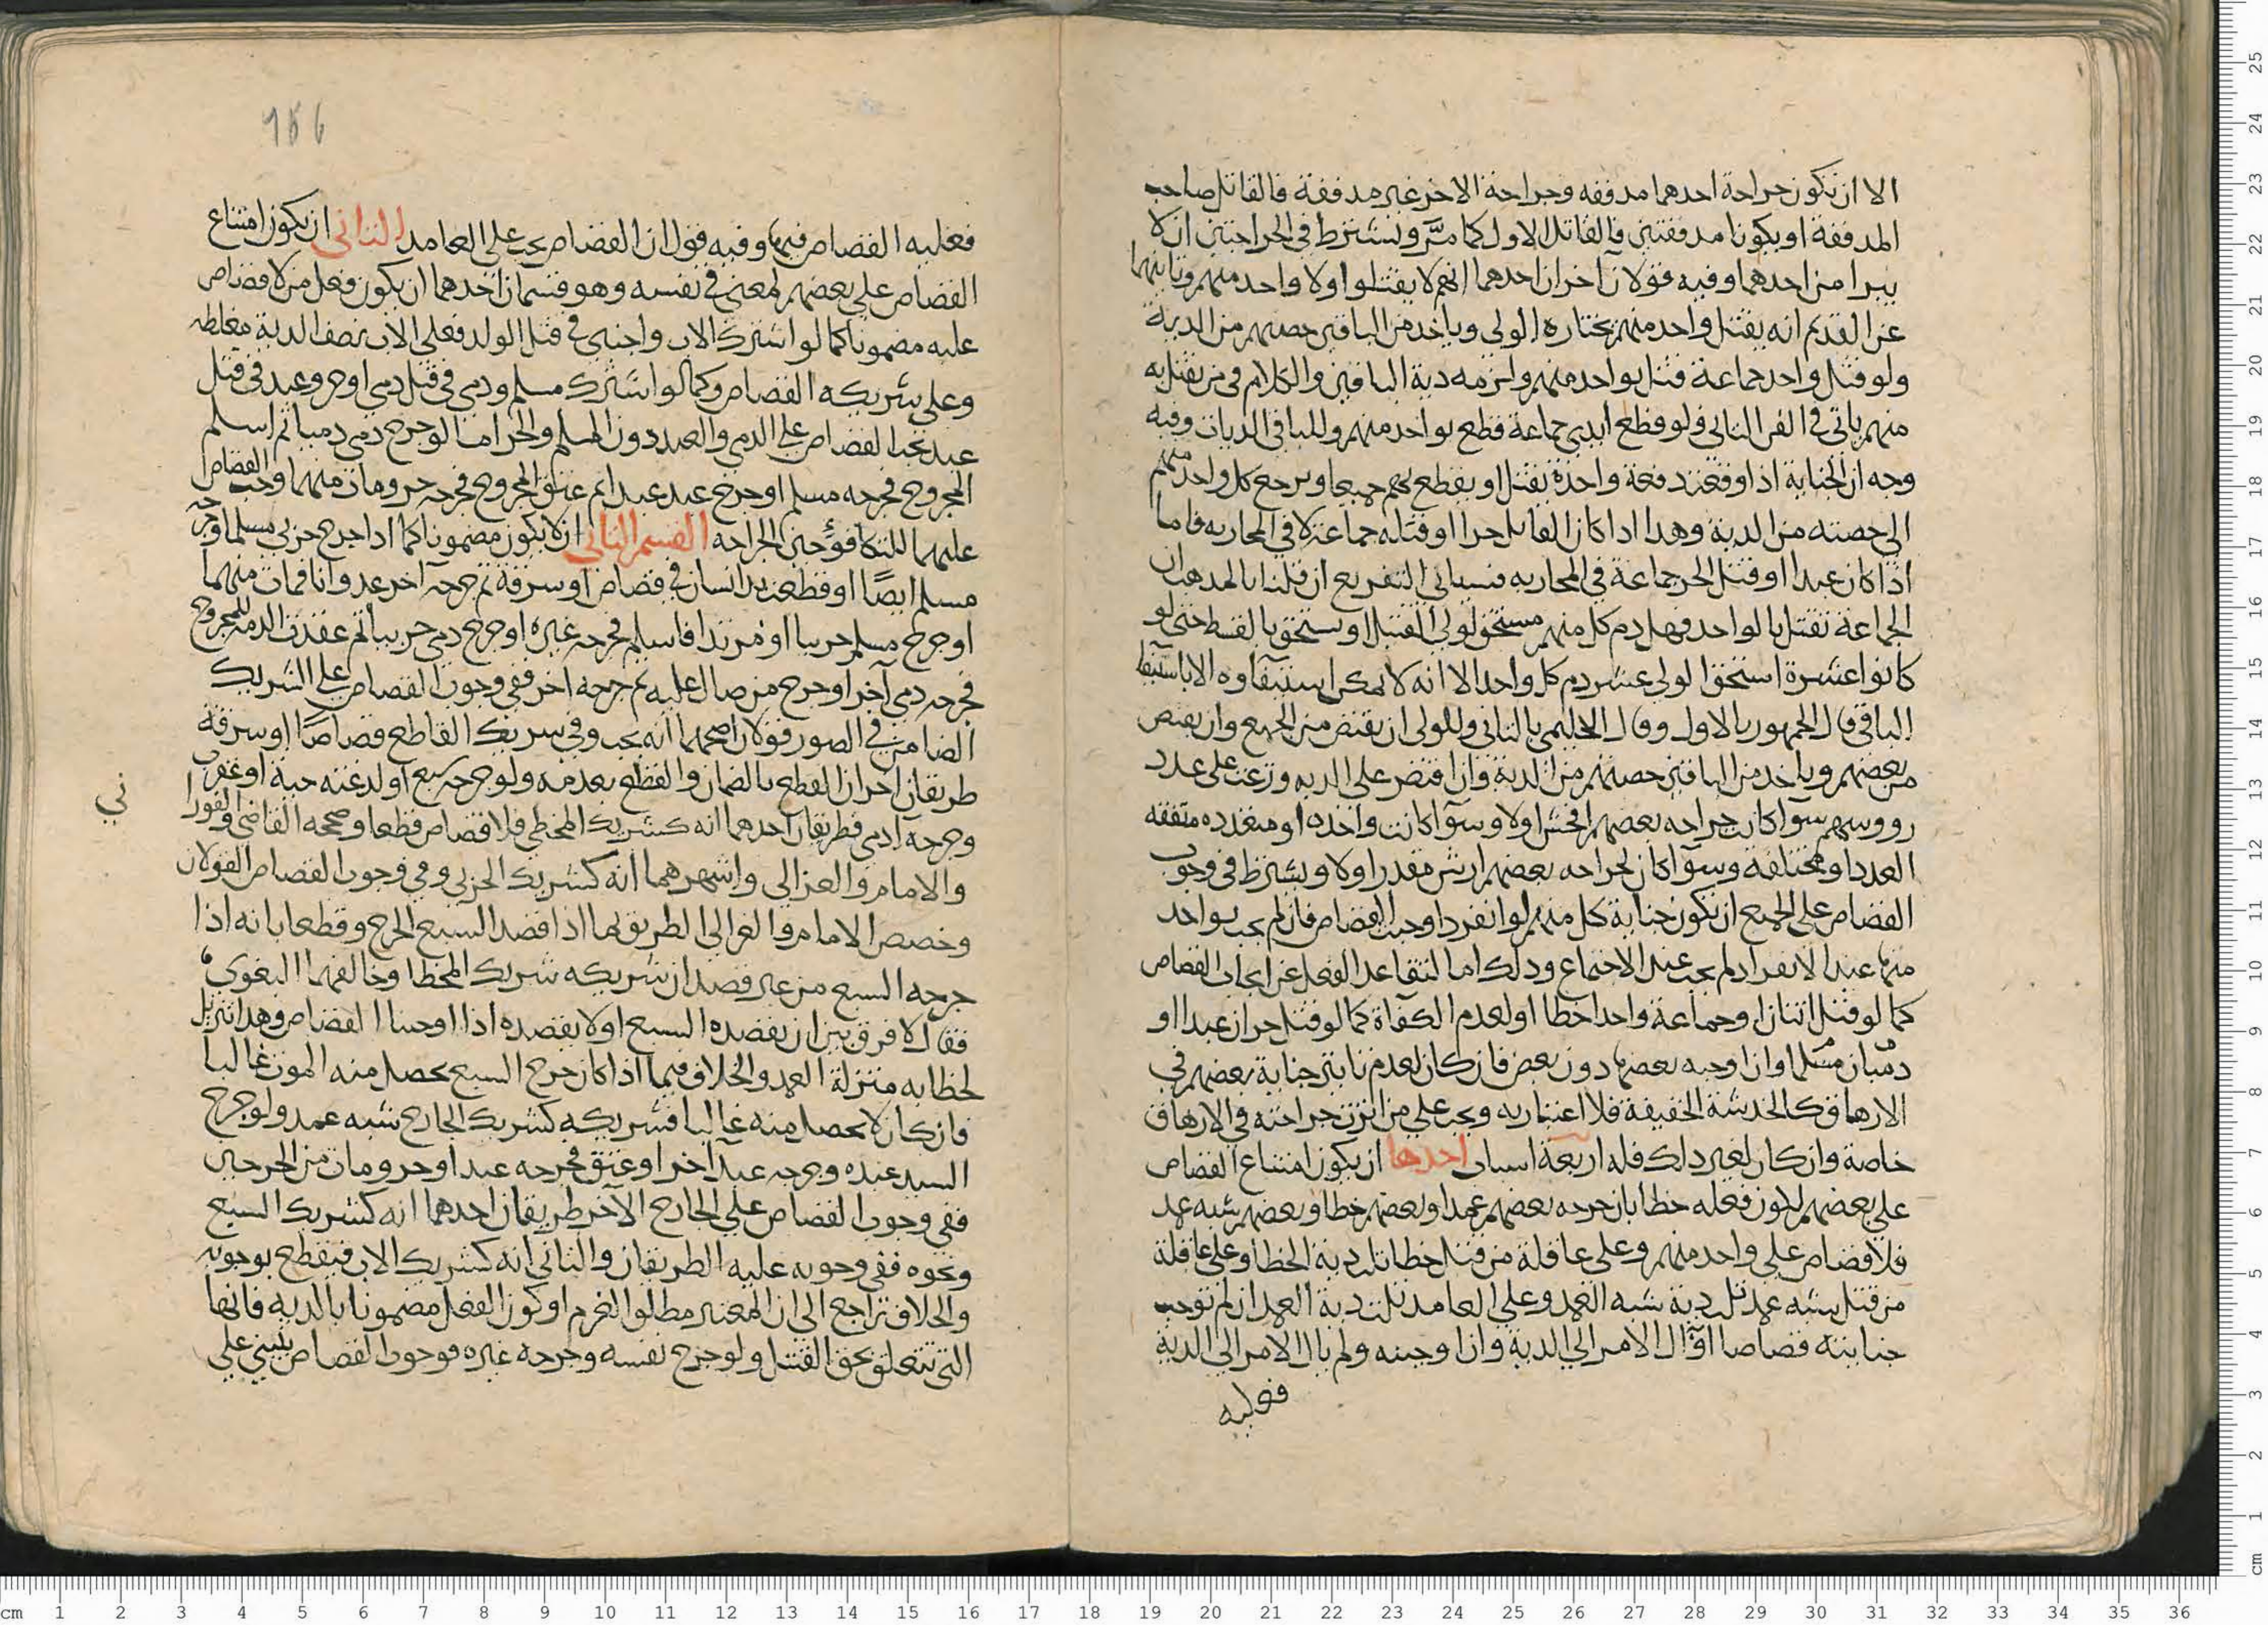 الا ان تكون جراحة احدهما مدففه وجراحة الاخر غير مدففة فالقاتل صاحب
المدففة او يكونا مدففتين فالقاتل الاول كما مرّ ويشترط في الجراحتين ان لا
يبرا من احدهما وفيه قولان آخران احدهما انهم لا يقتلوا ولا واحد منهم وثانيهما
عن القديم انه يقتل واحد منهم يختاره الولي وياخذ من الباقين حصتهم من الدية
ولو قتل واحد جماعة قتل بواحد منهم ولزمه دية الباقين والكلام في من يقتل به
منهم ياتي في الفن الثاني فلو قطع ايدي جماعة قطع بواحد منهم وللباقي الديات وفيه
وجه ان الجناية اذا وقعت دفعة واحدة يقتل او يقطع بهم جميعا ويرجع كل واحد منهم
الي حصته من الدية وهذا اذا كان القاتل حرا او قتله جماعة لا في المحاربه فاما
اذا كان عبدا او قتل الحر جماعة في المحاربه فسياتي التفريع ان قلنا بالمذهب ان
الجماعة تقتل بالواحد فهل دم كل منهم مستحق لولي القتيل او يستحق بالقسط حتى لو
كانوا عشرة استحق الولي عشر دم كل واحد الا انه لا يمكن استيفاوه الا باستيفا
الباقي قال الجمهور بالاول وقال الحليمي بالثاني وللولي ان يقتص من الجميع وان يقتص
من بعضهم وياخذ من الباقين حصتهم من الدية وان اقتصر على الديه وزعت على عدد
رووسهم سوا كان جراحه بعضهم افحش اولا وسوآ كانت واحده او متعدده متفقه
العدد او مختلفة وسوآ كان لجراحه بعضهم ارش مقدر اولا ويشترط في وجوب
القصاص على الجميع ان تكون جناية كل منهم لو انفرد اوجبت القصاص فان لم يجب بواحد
منها عند الانفراد لم يجب عند الاجتماع وذلك اما لتقاعد الفعل عن ايجاب القصاص
كما لو قتل اثنان او جماعة واحدا خطا او لعدم الكفاة كما لو قتل حران عبدا او
ذميان مسلما وان اوجبه بعضها دون بعض فان كان لعدم تاثير جناية بعضهم في
الازهاق كالخدشة الخفيفة فلا اعتبار به ويجب علي من اثرت جراحته في الازهاق
خاصة وان كان لغير ذلك فله اربعة اسباب احدها ان يكون امتناع القصاص
علي بعضهم لكون فعله خطا بان جرحه بعضهم عمدا وبعضهم خطا وبعضهم شبه عمد
فلا قصاص علي واحد منهم وعلى عاقلة من قتل خطا ثلث دية الخطا وعلى عاقلة
من قتل شبه عمد ثلث دية شبه العمد وعلي العامد ثلث دية العمد ان لم توجب
جنايته قصاصا او آل الامر الي الدية وان اوجبته ولم يال الامر الي الدية
فعليه
١٥٦
فعليه القصاص فيها وفيه قول ان القصاص يجب علي العامد الثاني ان يكون امتناع
القصاص علي بعضهم لمعني في نفسه وهو قسمان احدهما ان يكون فعل من لا قصاص
عليه مضمونا كما لو اشترك الاب واجنبي في قتل الولد فعلي الاب نصف الدية مغلظه
وعلي شريكه القصاص وكما لو اشترك مسلم وذمي في قتل ذمي او حر وعبد في قتل
عبد يجب القصاص علي الذمي والعبد دون المسلم والحر اما لو جرح ذمي ذميا ثم اسلم
المجروح فجرحه مسلم او جرح عبد عبدا ثم عتق المجروح فجرحه حر ومات منهما وجب القصاص
عليهما للتكافؤ حين الجراحه القسم الثاني ان لا يكون مضمونا كما اذا جرح حربي مسلما وجرحه
مسلم ايضًا او قطعت يد انسان في قصاص او سرقة ثم جرحه آخر عدوانا فمات منهما
او جرح مسلم حربيا او مرتدا فاسلم فجرحه غيره او جرح ذمي حربيا ثم عقدت الذمة للمجروح
فجرحه ذمي آخر او جرح من صال عليه ثم جرحه آخر ففي وجوب القصاص علي الشريك
الضامن في الصور قولان اصحهما انه يجب وفي شريك القاطع قصاصًا او سرقة
طريقان آخران القطع بالضمان والقطع بعدمه ولو جرحه سبع او لدغته حية او عقرب
وجرحه ادمي فطريقان احدهما انه كشريك المخطي فلا قصاص قطعا وصححه القاضي والفورا
ني
والامام والغزالي واشهرهما انه كشريك الحربي ففي وجوب القصاص القولان
وخصص الامام والغزالي الطريق بما اذا قصد السبع الجرح وقطعا بانه اذا
جرحه السبع من غير قصد ان شريكه شريك المخطا وخالفهما البغوي
فقال لا فرق بين ان يقصده السبع او لا يقصده اذا اوجبنا القصاص وهذا تنزيل
لخطايه منزلة العمد والخلاف فيما اذا كان جرح السبع يحصل منه الموت غالبا
فان كان لا يحصل منه غالبا فشريكه كشريك الجارح شبه عمد ولو جرح
السيد عبده وجرحه عبد آخر او عتق فجرحه عبد او حر ومات من الجرحين
ففي وجوب القصاص علي الجارح الآخر طريقان احدهما انه كشريك السبع
ونحوه ففي وجوبه عليه الطريقان والثاني انه كشريك الاب فيقطع بوجوبه
والخلاف راجع الي ان المعتبر مطلق الغرم او كون الفعل مضمونا بالدية فانها
التي تتعلق بحق القتل ولو جرح نفسه وجرحه غيره فوجوب القصاص ينبني علي